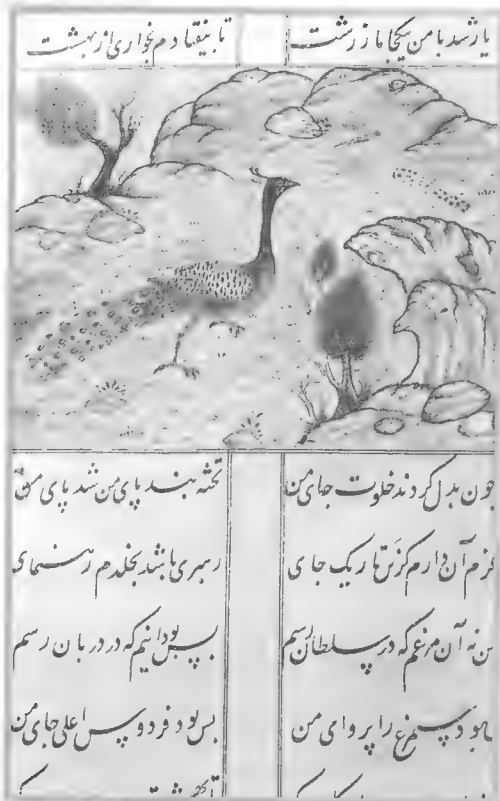 یار شد با من بیکجا مار زشت تا بیفتادم بخواری از بهشت
چون بدل کردند خلوت جای من تخته بند پای من شد پای من
عزم آن دارم کزین تاریک جای رهبری باشد بخلدم رهنمای
من نه آن مرغم که در سلطان رسم بس بود اینم که در دربان رسم
بود سیمرغ را پروای من بس بود فردوس اعلی جای من